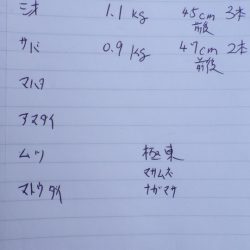 シオ 1.1 kg 45cm 3本
前後
サバ 0.9 kg 47cm 2本
前後
マハタ
アマダイ
ムツ 極東
マサムネ
マトウダイ ナガマサ